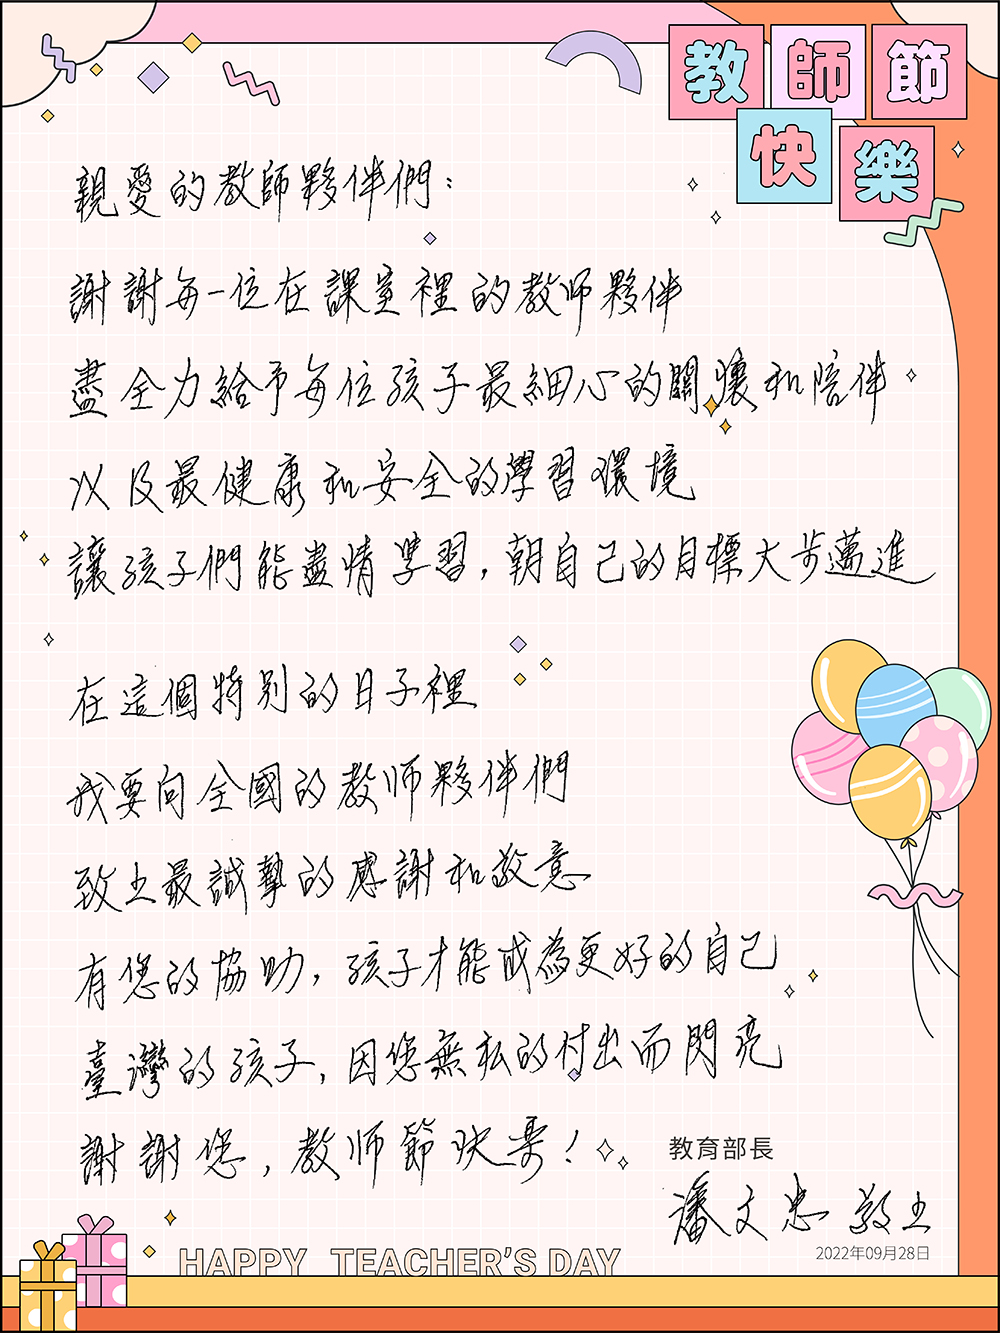 教師節
快樂
親愛的教師夥伴們：
謝謝每一位在課室裡的教师夥伴
盡全力給予每位孩子最細心的關懷和陪伴
以及最健康和安全的學習環境
讓孩子們能盡情學習，朝自己的目標大步邁進
在這個特別的日子裡
我要向全國的教师夥伴們
致上最誠摯的感謝和敬意
有您的協助，孩子才能成為更好的自己
臺灣的孩子，因您無私的付出而閃亮
謝謝您，教师節快樂！
教育部長
潘文忠 敬上
2022年09月28日
HAPPY TEACHER'S DAY